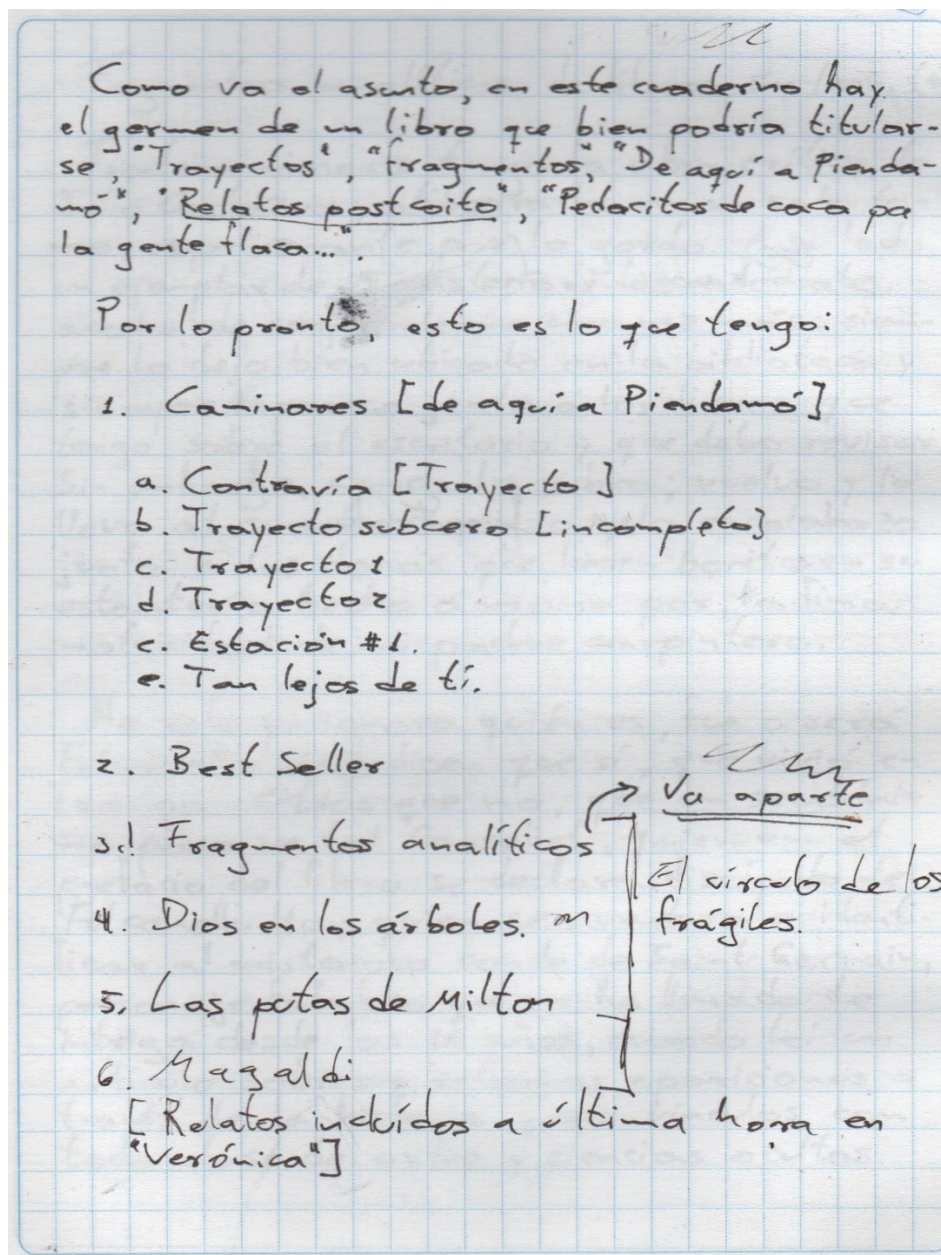 Como va el asunto, en este cuaderno hay
el germen de un libro que bien podría titular-
se, "Trayectos", "fragmentos", "De aquí a Pienda-
mó", "Relatos postcoito", "Pedacitos de caca pa
la gente flaca...".
Por lo pronto, esto es lo que tengo:
1. Caminares [de aquí a Piendamó]
a. Contravía [Trayecto]
b. Trayecto subcero [incompleto]
c. Trayecto 1
d. Trayecto 2
e. Estación #1.
e. Tan lejos de tí.
2. Best Seller
Va aparte
3. Fragmentos analíticos
El círculo de los
frágiles.
4. Dios en los árboles.
5. Las putas de Milton
6. Magaldi
[Relatos incluídos a última hora en
"Verónica"]